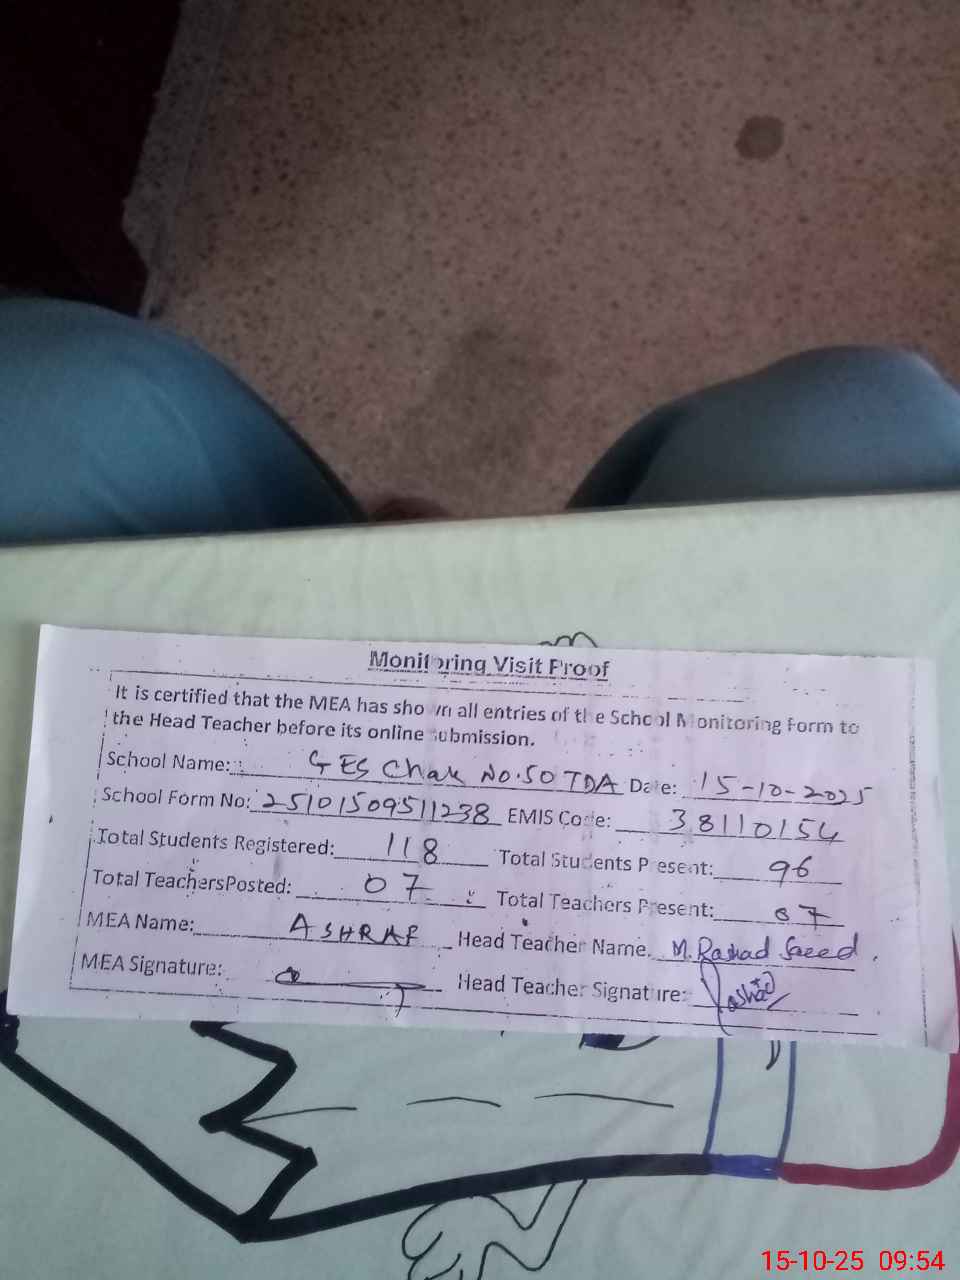 Monitoring Visit Proof
It is certified that the MEA has shown all entries of the School Monitoring Form to
the Head Teacher before its online submission.
School Name: GES Chak No.50 TDA Date: 15-10-2025
School Form No: 25101509511238 EMIS Code: 38110154
Total Students Registered: 118 Total Students Present: 96
Total TeachersPosted: 07 Total Teachers Present: 07
MEA Name: ASHRAF Head Teacher Name. M. Rashad Saeed.
MEA Signature: Head Teacher Signature: Rashad
15-10-25 09:54